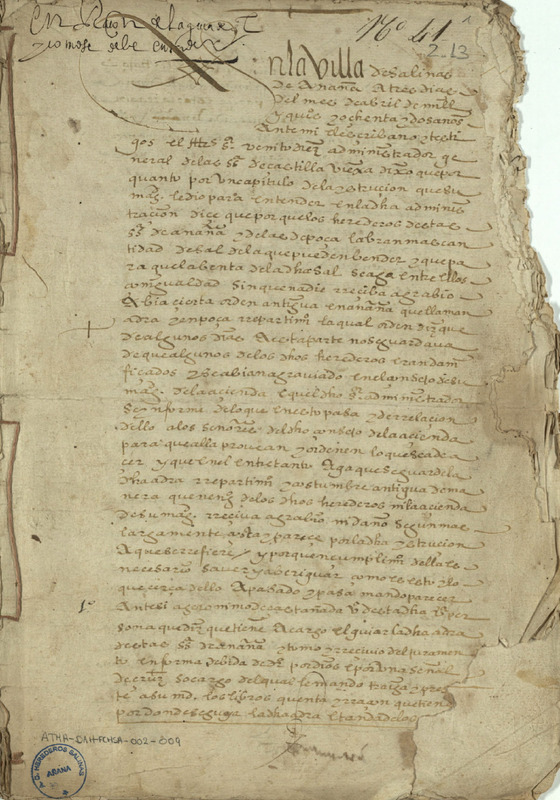 En Razon de la
y como se debe
No 41
213
En la Villa de salinas
de añana A tres dias
del mes de abril de mill
y quis y ochenta y dos años
Ante mi el escribano y testi
gos el administrador ge
neral de las de castilla viexa dixo que por
quanto por un capitulo de la ystrucion que su
mag. le dio para entender en la dha adminis
tracion dice que porque los herederos destas
de añana y de las de poça labran mas can
tidad de sal de la que pueden bender y que pa
ra que la benta de la dha sal se aga entre ellos
con igualdad sin que nadie rreciba agrabio
Abia cierta orden antigua en añana que llaman
adra y en poça rrepartimi la qual orden diz que
de algunos dias A esta parte no se guardava
de que algunos de los dhos herederos eran dam
ficados y se abian agraviado en el consejo de su
mag. de la acienda e que el dho administrador
se ynforme de lo que en esto pasa y de rrelacion
dello a los señores del dho consejo de la acienda
para que alla provean y ordenen lo que se a de a
cer y que en el entretanto Aga que se guarde la
dha adra rrepartimi y costumbre antigua de ma
nera que nenguo de los dhos herederos ni la acienda
de su mag. rreciva agrabio ni daño segun mas
largamente consta y parece por la dha ystrucion
A que se rrefiere y porque en cumplimi della es
necesario saver y aberiguar como es esto y lo
que cerca dello A pasado y pasa mando parecer
1º
Ante si a geronimo de castañada vº desta dha Vª per
sona que diz que tiene A cargo el guiar la dha adra
destas de añana y tomo y rrecivio del juramen
to en forma debida de dro por dios e por una señal
de cruz so cargo del qual le mando traiga y pres
te a su md. los libros quenta y rraçon que tiene
por donde se guia la dha adra e tanda de los
ATHA-DAH-FCHSA-002-009
P. G. HEREDEROS SALINAS
AÑANA